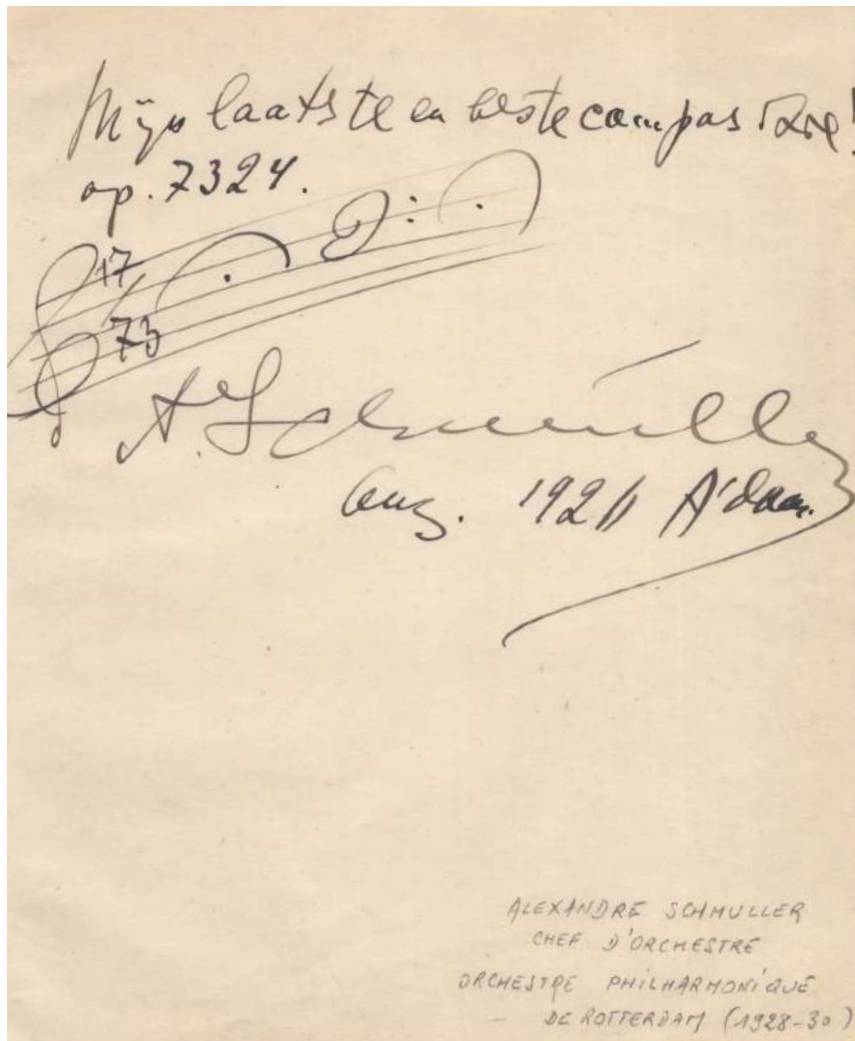 Mijn laatste en beste compositie!
op. 7324.
17
73
A. Schmüller
Aug. 192 A'dam.
ALEXANDRE SCHMULLER
CHEF D'ORCHESTRE
ORCHESTRE PHILHARMONIQUE
DE ROTTERDAM (1928-30)